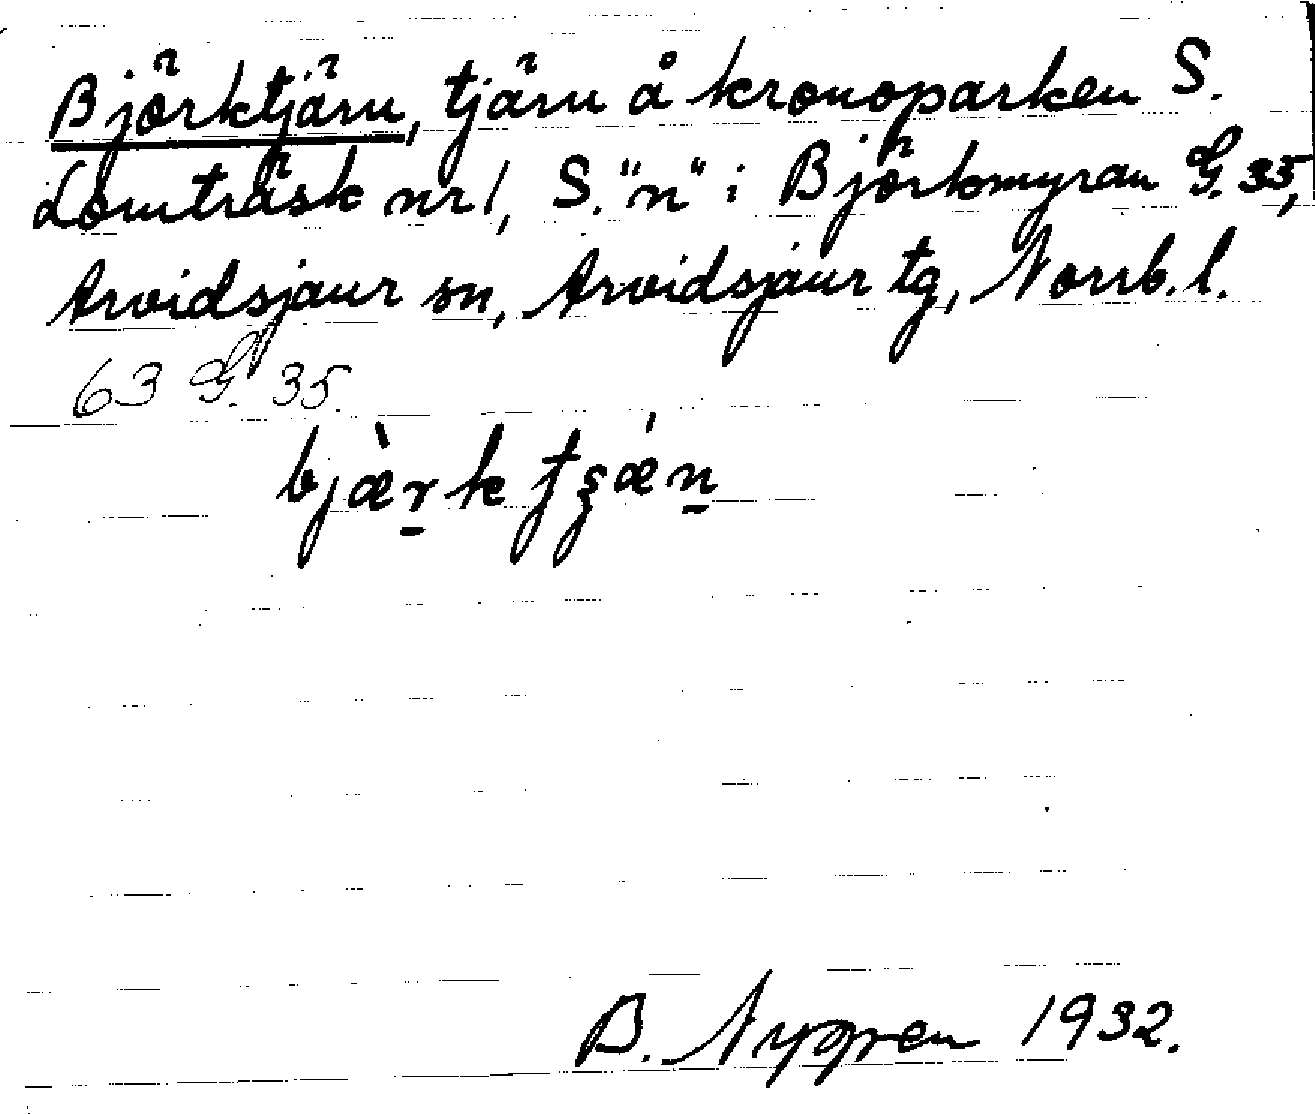 Björktjärn, tjärn å kronoparken S.
Lomträsk nr 1, S. "n" i Björkmyran G. 35,
Arvidsjaur sn, Arvidsjaur tg, Norrb. l.
63 G. 35.
bjæ̀r̠k tʂǽn̠
B. Nygren 1932.